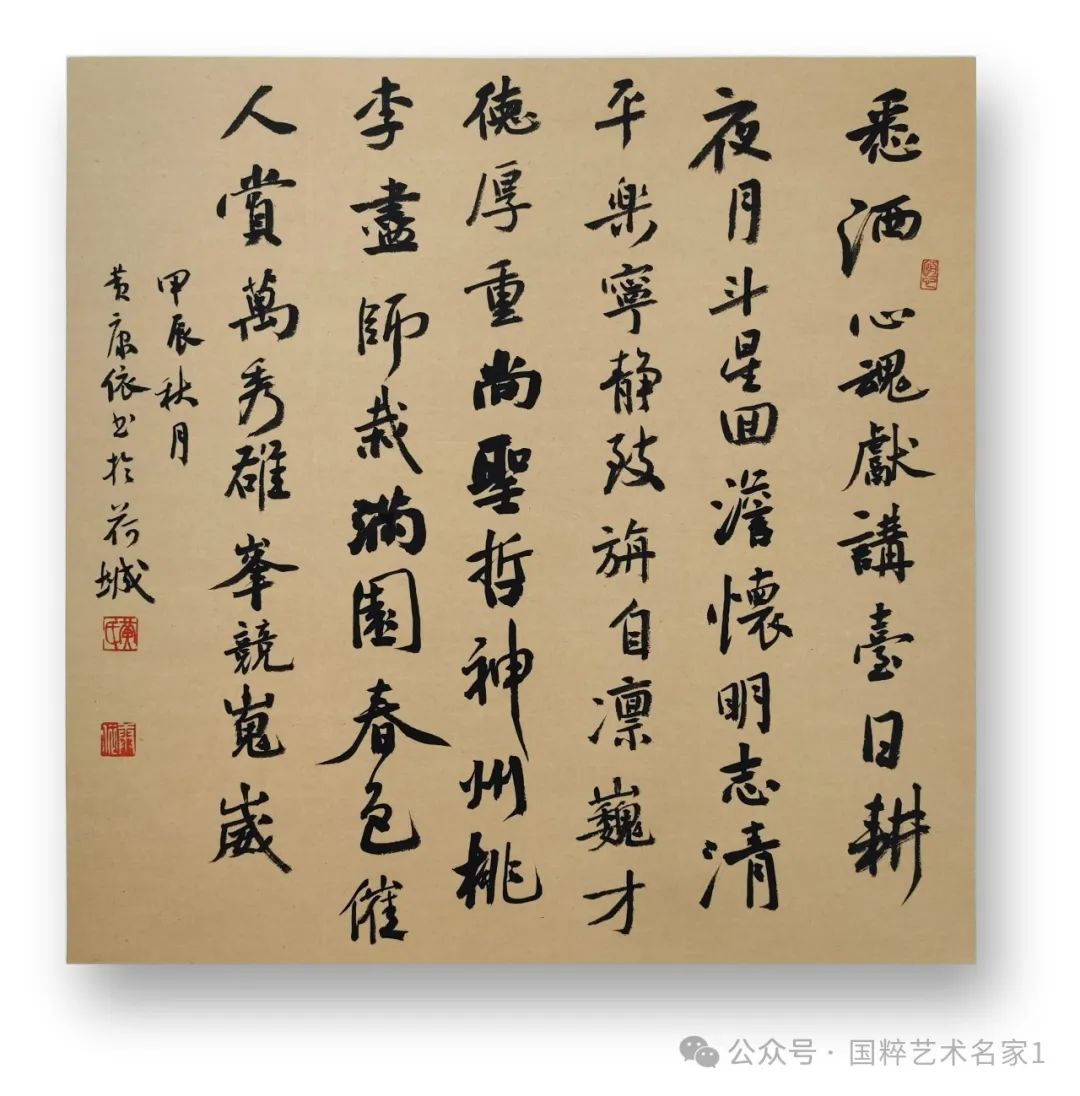 悉洒心魂獻講臺日耕
夜月斗星回澹懷明志清
平樂寧静致旃自凛巍才
德厚重尚聖哲神州桃
李盡師栽满園春色催
人賞萬秀雄峯競嵬崴
甲辰秋月
黄康依书於荷城
公众号 · 国粹艺术名家1